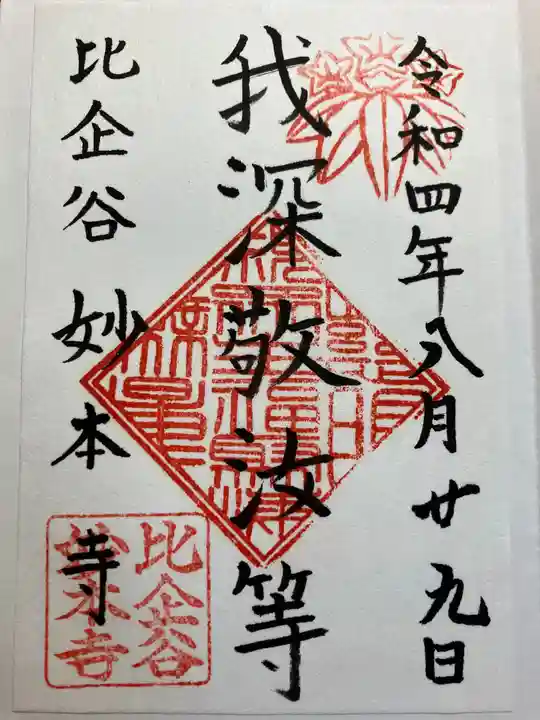 令和四年八月廿九日
我深敬汝等
比企谷 妙本寺
比企谷
妙本寺